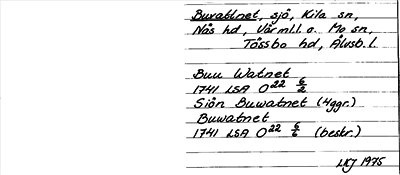 Buvattnet, sjö, Kila sn,
Näs hd, Värml.l. o. Mo sn,
Tössbo hd, Älvsb.l.
Buu Watnet
1741 LSA O22 6/2
Siön Buwatnet (4ggr.)
Buwatnet
1741 LSA O22 6/6 (beskr.)
1975